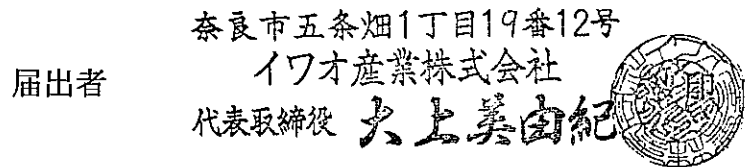 奈良市五条畑1丁目19番12号
イワオ産業株式会社
届出者
代表取締役 大上英由紀